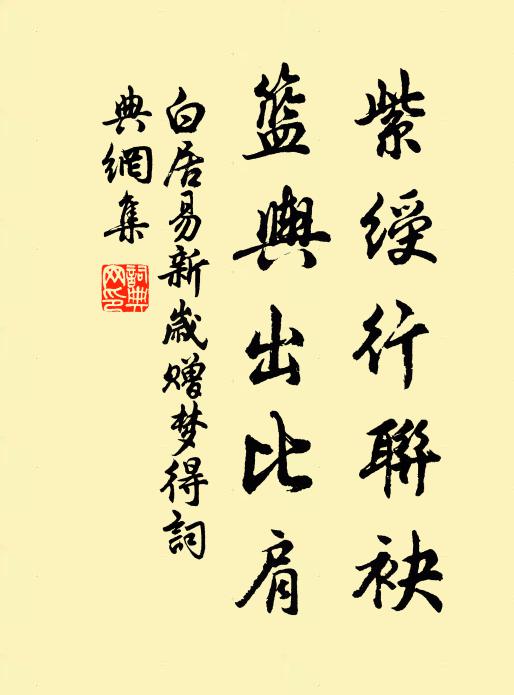 紫綬行聯袂
籃輿出比肩
白居易新歲贈梦得詞
典網集
詞典网印